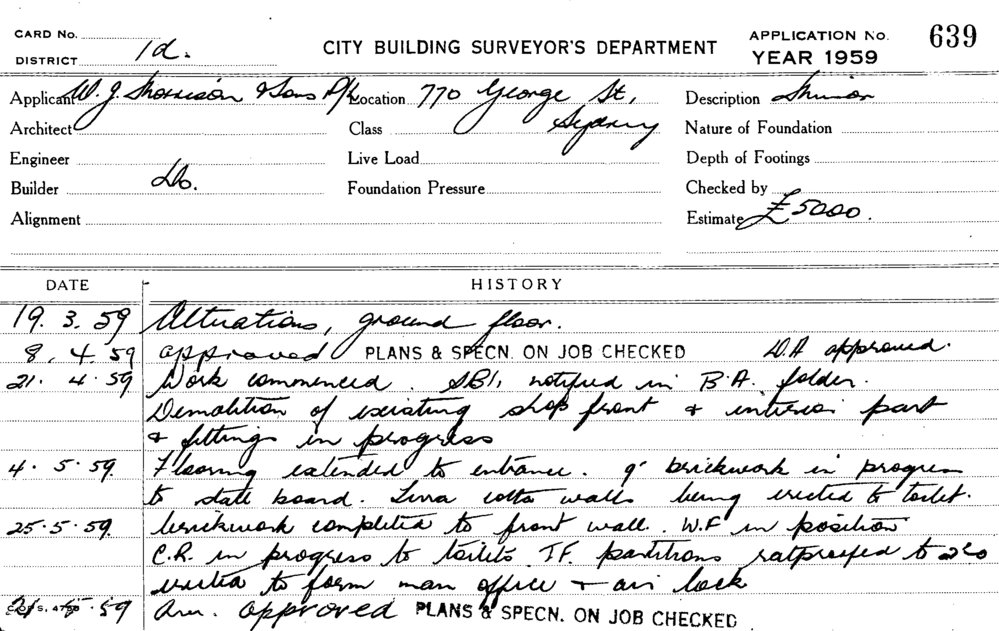 CARD No.
DISTRICT 1d.
CITY BUILDING SURVEYOR'S DEPARTMENT
APPLICATION No. 639
YEAR 1959
Applicant W. J. Morrison & Sons P/L
Location 770 George St,
Sydney
Description Minor
Architect
Class
Nature of Foundation
Engineer
Live Load
Depth of Footings
Builder Do.
Foundation Pressure
Checked by
Alignment
Estimate £5000.
DATE HISTORY
19. 3. 59 Alterations, ground floor.
8. 4. 59 approved PLANS & SPECN. ON JOB CHECKED D.A approved.
21. 4. 59 Work commenced. notified in B.A. folder.
Demolition of existing shop front & interior part
& fittings in progress
4. 5. 59. Flooring extended to entrance. 9" brickwork in progress
to stall board. Terra cotta walls being erected to toilet.
25. 5. 59. brickwork completed to front wall. W.F in position
C.R. in progress to toilets T.F. partitions ratproofed to
erected to form man office & air lock
59 Am. approved PLANS & SPECN. ON JOB CHECKED